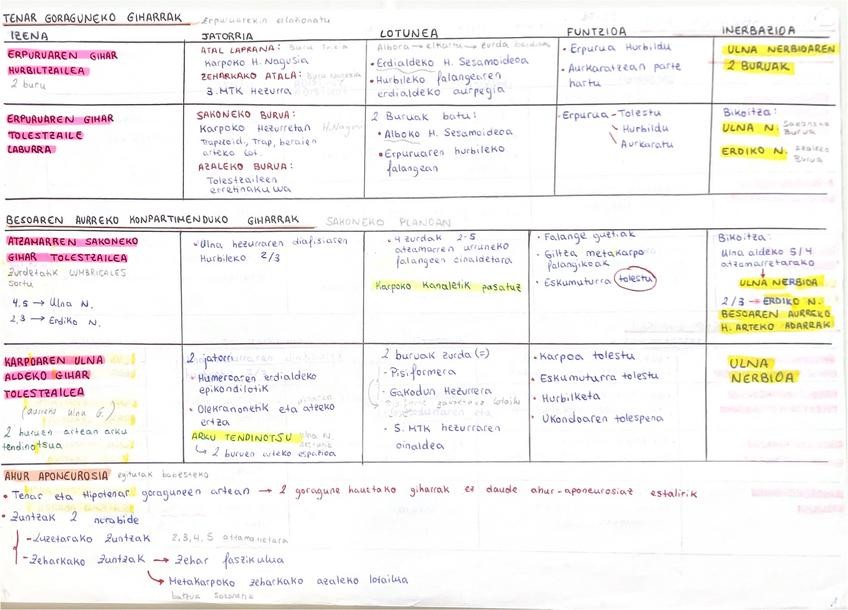 TENAR GORAGUNEKO GIHARRAK Erpuruarekin erlazionatu
IZENA JATORRIA LOTUNEA FUNTZIOA INERBAZIOA
ERPURUAREN GIHAR
HURBILTZAILEA
2 buru
ATAL LAPRANA:
KARPOKO H. NAGUSIA
ZEHARKAKO ATALA:
3. MTK HEZURRA
• Erdialdeko H. Sesamoideoa
• Hurbileko falangearen
erdialdeko aurpegia
• Erpurua Hurbildu
• Aurkaratzean parte
hartu
ULNA NERBIOAREN
2 BURUAK
ERPURUAREN GIHAR
TOLESTZAILE
LABURRA
SAKONEKO BURUA:
Karpoko Hezurretan H.Nagusi
Trapezoid., Trap, beraien
arteko lot.
AZALEKO BURUA:
Tolestzaileen
erretinakuwa
2 Buruak batu:
• Alboko H. Sesamoideoa
• Erpuruaren hurbileko
falangean
• Erpurua - Tolestu
Hurbildu
Aurkaratu
Bikoitza:
ULNA N. Sakoneko
Burua
ERDIKO N. Azaleko
Burua
BESOAREN AURREKO KONPARTIMENDUKO GIHARRAK SAKONEKO PLANOAN
ATZAMARREN SAKONEKO
GIHAR TOLESTZAILEA
zurdetatik LUMBRICALES
sortu
4,5 → Ulna N.
2,3 → Erdiko N.
• Ulna hezurraren diafisiaren
Hurbileko 2/3
• 4 zurdak 2-5
atzamarren urruneko
falangeen oinaldetara
Karpoko Kanaletik pasatuz
• Falange guztiak
• Giltza metakarpo
falangikoak
• Eskumuturra tolestu
Bikoitza:
Ulna aldeko 5/4
atzamarretarako
↓
ULNA NERBIOA
2/3 → ERDIKO N.
BESOAREN AURREKO
H. ARTEKO ADARRAK
KARPOAREN ULNA
ALDEKO GIHAR
TOLESTZAILEA
(aurreko ulna G.)
2 buruen artean arku
tendinotsua
2 jatorri
• Humeroaren erdialdeko
epikondilotik
• Olekranonetik eta atzeko
ertza
ARKU TENDINOTSU
↳ 2 buruen arteko espazioa
2 buruak zurda (=)
- Pisiformera
- Gakodun Hezurrera
- 5. MTK hezurraren
oinaldea
• Karpoa tolestu
• Eskumuturra tolestu
• Hurbilketa
• Ukondoaren tolespena
ULNA
NERBIOA
AHUR APONEUROSIA egiturak babesteko
• Tenar eta Hipotenar goraguneen artean → 2 goragune hauetako giharrak ez daude ahur-aponeurosiaz estalirik
• Zuntzak 2 norabide
- Luzetarako Zuntzak 2,3,4,5 atzamarretara
- Zeharkako Zuntzak → Zehar faszikulua
↳ Metakarpoko zeharkako azaleko lotailua